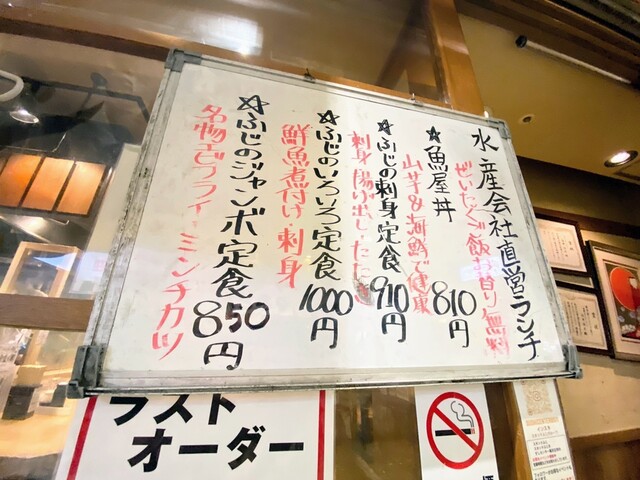 水産会社直営ランチ
ぜいたくご飯お替り無料
☆魚屋丼
810円
山芋&海鮮で健康
☆ふじの刺身定食
910円
刺身 揚げ出し たたき
☆ふじのいろいろ定食
1000円
鮮魚煮付け 刺身
☆ふじのジャンボ定食
850円
名物エビフライ ミンチカツ
ラスト
オーダー